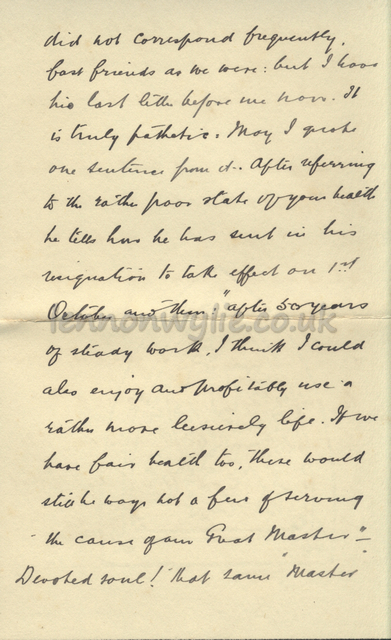 did not correspond frequently,
fast friends as we were: but I have
his last letter before me now. It
is truly pathetic. May I quote
one sentence from it. After referring
to the rather poor state of your health
he tells how he has sent in his
resignation to take effect on 1st
October and then "after 50 years
lennonwylie.co.uk
of steady work, I think I could
also enjoy and profitably use a
rather more leisurely life. If we
have fair health too, there would
still be ways not a few of serving
the cause of our Great Master"–
Devoted soul! That same "Master